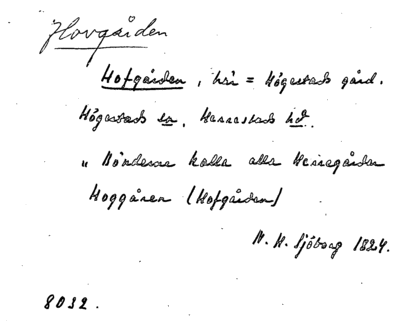 Hovgården
Hofgården, hsi = Högestads gård.
Högestads sn, Herrestads hd.
„ Bönderna kalla alla Herregårdar
Hoggåren (Hofgården)
N. H. Sjöborg 1824.
8032.